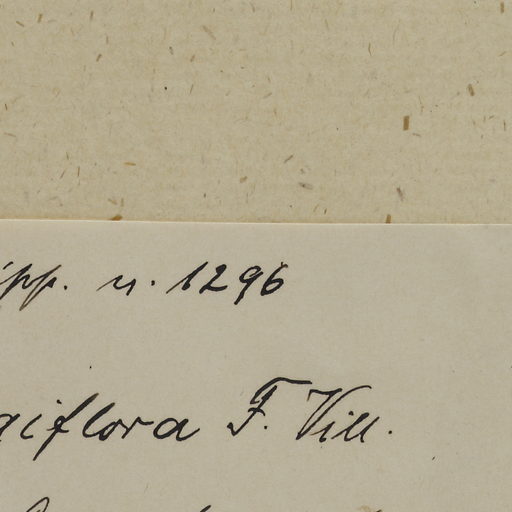 ipp. n. 1296
giflora F. Vill.